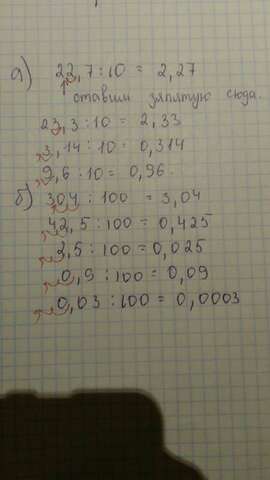 а) 22,7 : 10 = 2,27
ставим запятую сюда.
23,3 : 10 = 2,33
3,14 : 10 = 0,314
9,6 : 10 = 0,96.
б) 304 : 100 = 3,04
42,5 : 100 = 0,425
2,5 : 100 = 0,025
0,9 : 100 = 0,09
0,03 : 100 = 0,0003